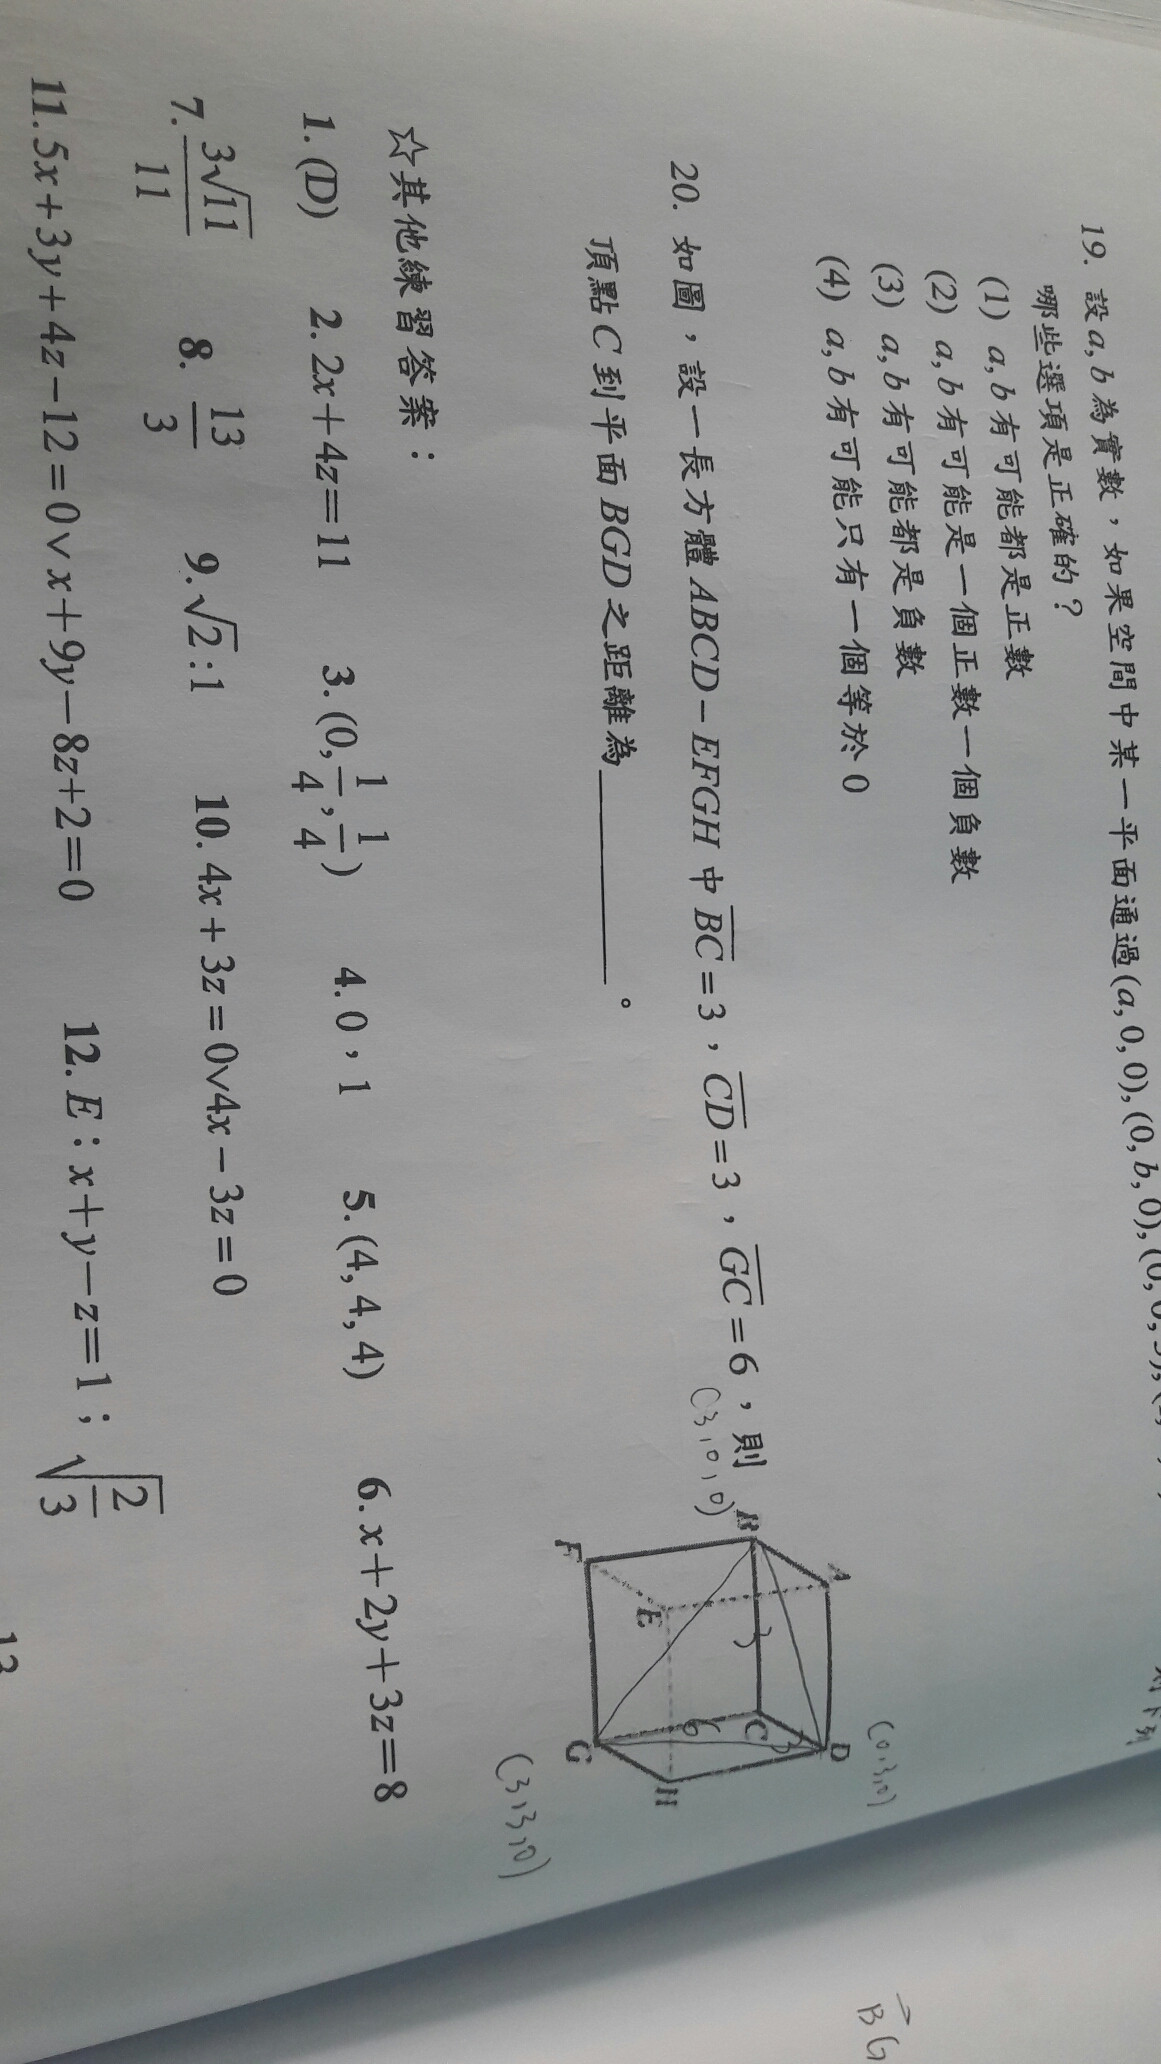 19. 設a,b為實數，如果空間中某一平面通過(a,0,0),(0,b,0),(0,0,
哪些選項是正確的？
(1) a,b有可能都是正數
(2) a,b有可能是一個正數一個負數
(3) a,b有可能都是負數
(4) a,b有可能只有一個等於0
20. 如圖，設一長方體ABCD－EFGH中BC=3，CD=3，GC=6，則
頂點C到平面BGD之距離為________。
(3,0,0)
(0,3,0)
(3,3,0)
A
B
C
D
E
F
G
H
3
3
6
BG
☆其他練習答案：
1.(D) 2. 2x+4z=11 3. (0,1/4,1/4) 4. 0，1 5. (4,4,4) 6. x+2y+3z=8
7. 3√11/11 8. 13/3 9. √2:1 10. 4x+3z=0∨4x−3z=0
11. 5x+3y+4z−12=0∨x+9y−8z+2=0 12. E:x+y−z=1；√(2/3)
13